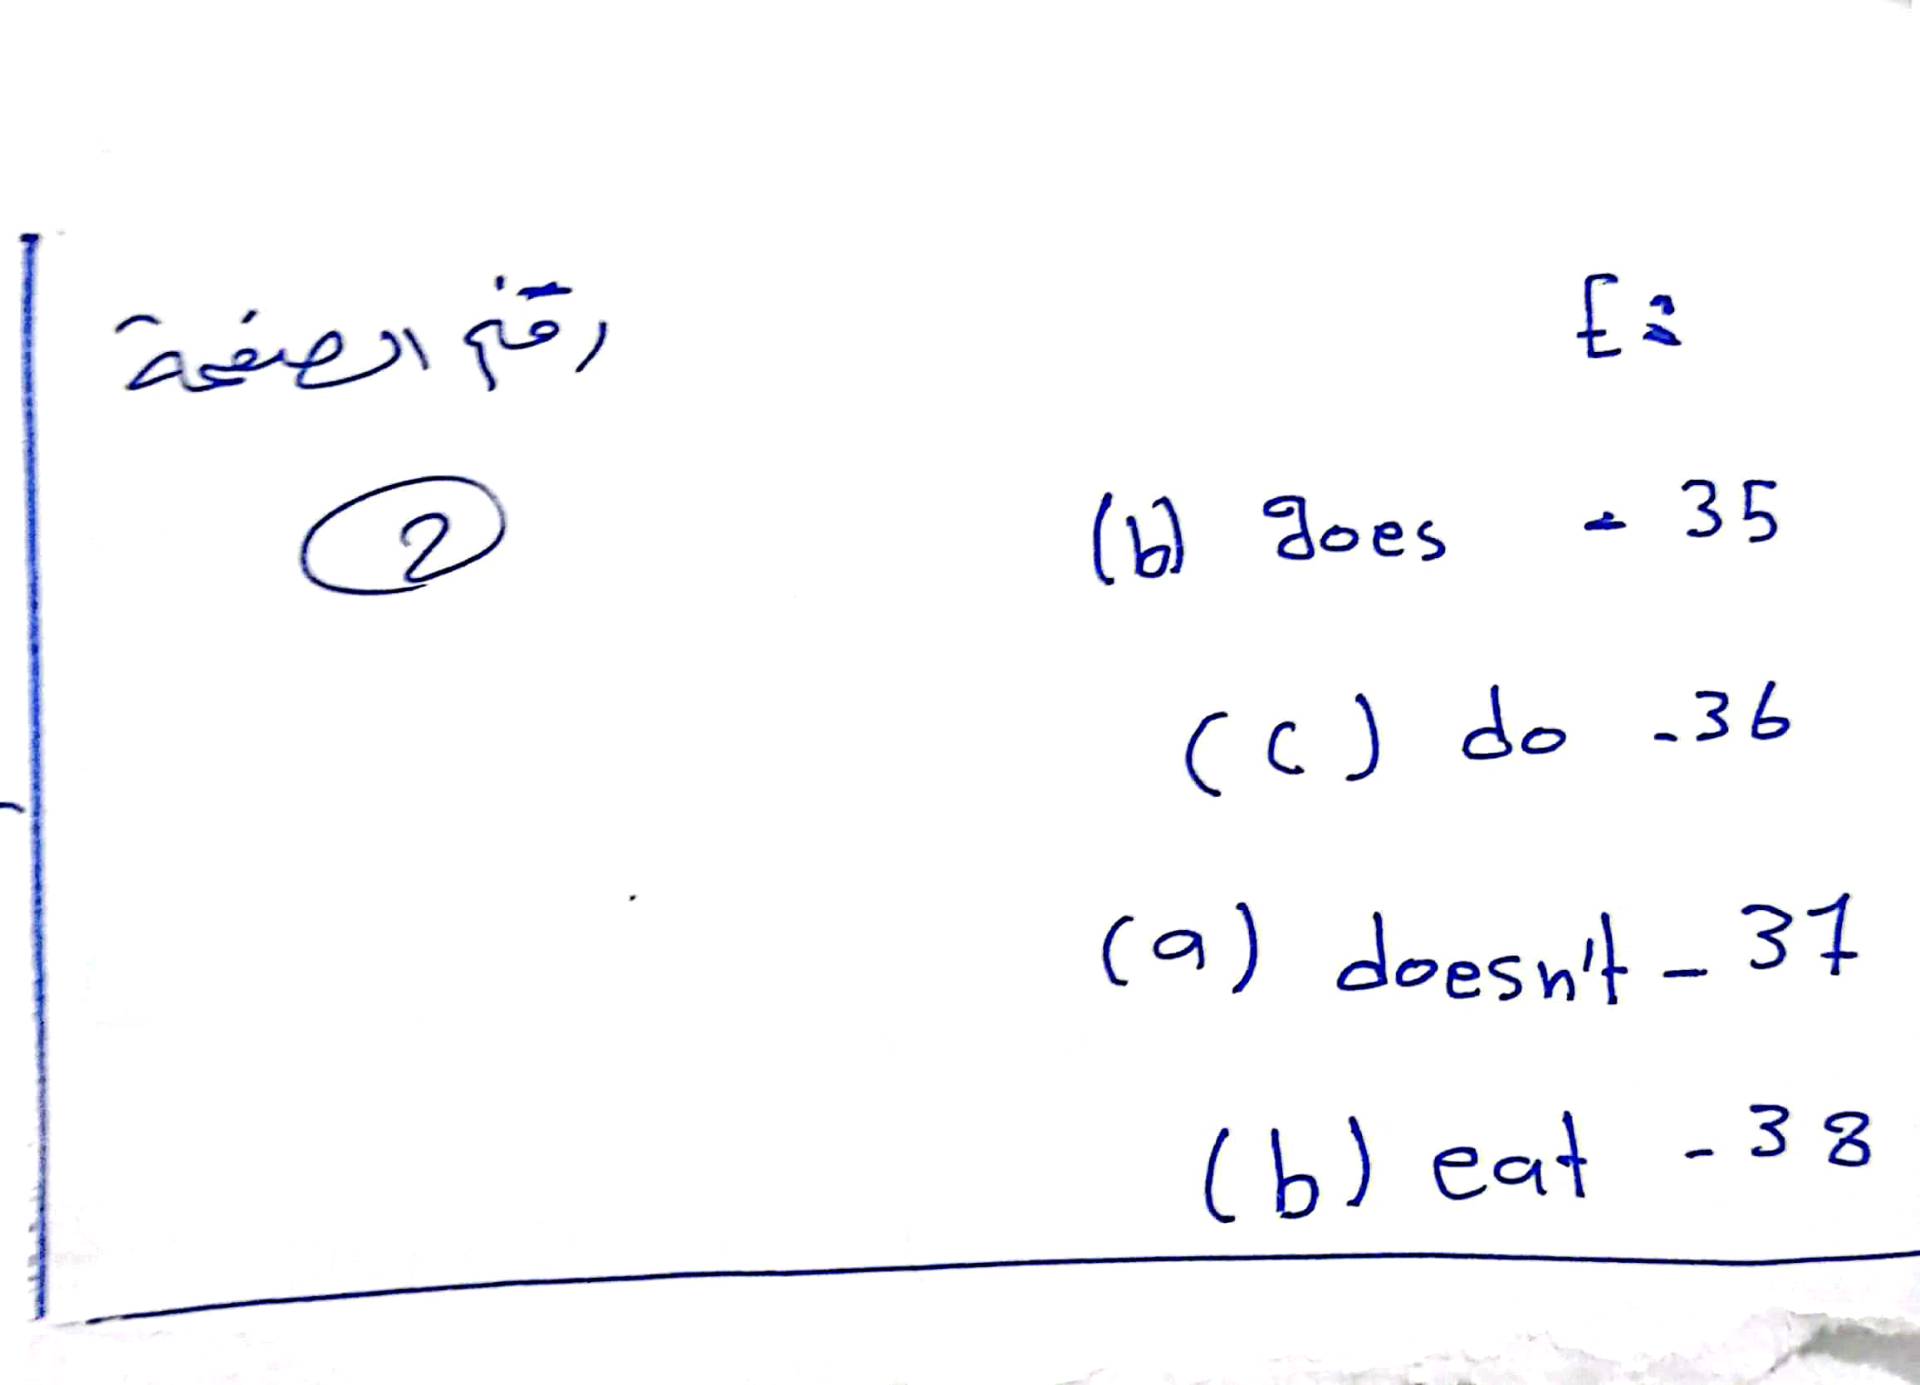 رقم الصفحة
2
E:
35 - goes (b)
36 - do (c)
37 - doesn't (a)
38 - eat (b)